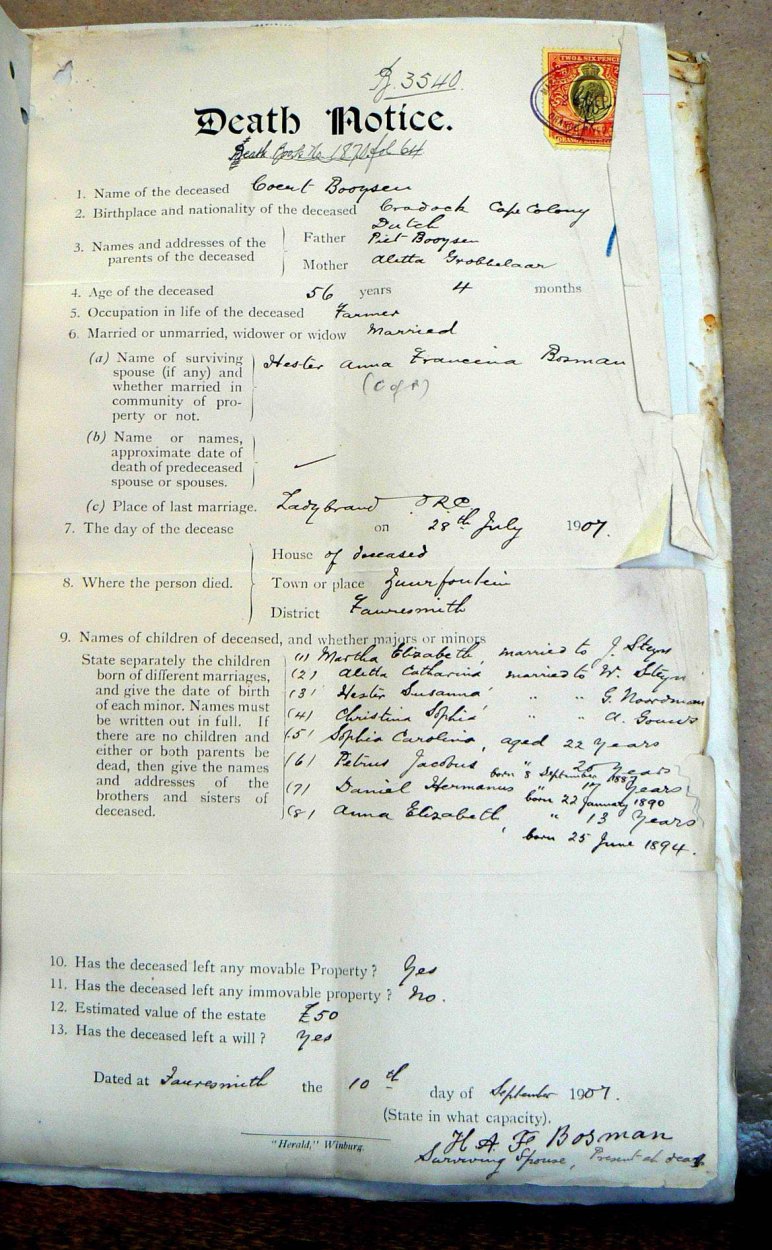 B. 3540.
TWO & SIX PENCE
Death Notice.
Death Book No 1870 fol 64
1. Name of the deceased Coert Booysen
2. Birthplace and nationality of the deceased Cradock Cape Colony
Dutch
3. Names and addresses of the parents of the deceased
Father Piet Booysen
Mother Aletta Grobbelaar
4. Age of the deceased 56 years 4 months
5. Occupation in life of the deceased Farmer
6. Married or unmarried, widower or widow Married
(a) Name of surviving Hester Anna Francina Bosman
spouse (if any) and
whether married in (C of P)
community of pro-
perty or not.
(b) Name or names,
approximate date of
death of predeceased
spouse or spouses.
(c) Place of last marriage. Ladybrand ORC
7. The day of the decease on 28th July 1907.
House of deceased
8. Where the person died. Town or place Zuurfontein
District Fauresmith
9. Names of children of deceased, and whether majors or minors
State separately the children (1) Martha Elizabeth, married to J. Steyn
born of different marriages, (2) Aletta Catharina married to W. Steyn
and give the date of birth (3) Hester Susanna " " G. Noordman
of each minor. Names must (4) Christina Sophia " " A. Gouws
be written out in full. If (5) Sophia Carolina, aged 22 years
there are no children and (6) Petrus Jacobus " 20 years
either or both parents be born 8 September 1887
dead, then give the names (7) Daniel Hermanus " 17 years
and addresses of the born 22 January 1890
brothers and sisters of (8) Anna Elizabeth " 13 years
deceased. born 25 June 1894.
10. Has the deceased left any movable Property? Yes
11. Has the deceased left any immovable property? No.
12. Estimated value of the estate £50
13. Has the deceased left a will? Yes
Dated at Fauresmith the 10th day of September 1907.
(State in what capacity).
H A F Bosman
"Herald," Winburg.
Surviving Spouse, Present at death